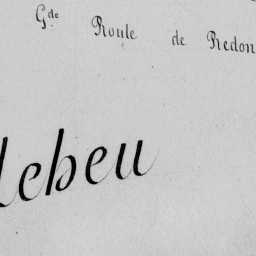 Gde Route de Redon
lebeu